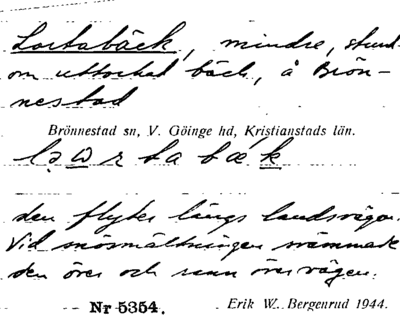 Lortabäck, mindre, stund-
om uttorkad bäck, å Brön-
nestad
Brönnestad sn, V. Göinge hd, Kristianstads län.
den flyter längs landsvägen.
Vid snösmältningen svämmade
den över och rann över vägen.
Nr 5354. Erik W. Bergenrud 1944.